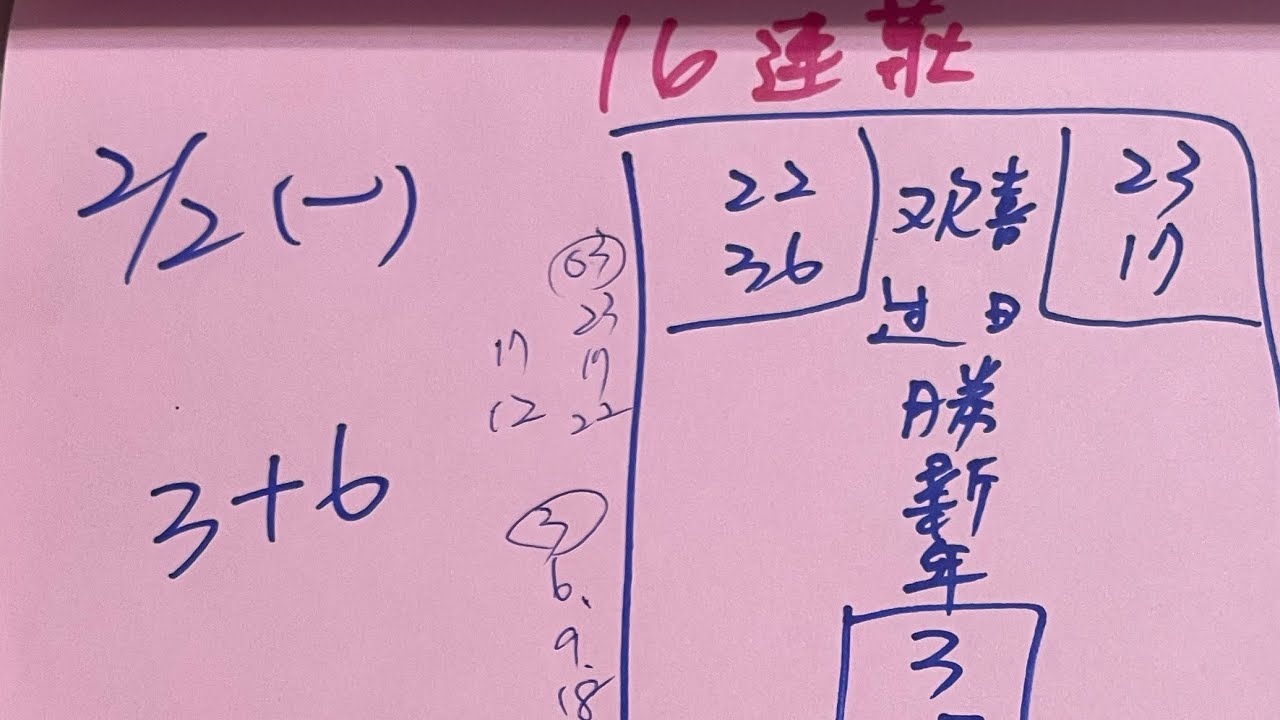 16 連莊
2/2 (一)
22 欢喜 23
36 过日 17
勝
新
年
3
3+6
63
23
17 17
12 22
3
6.
9.
18